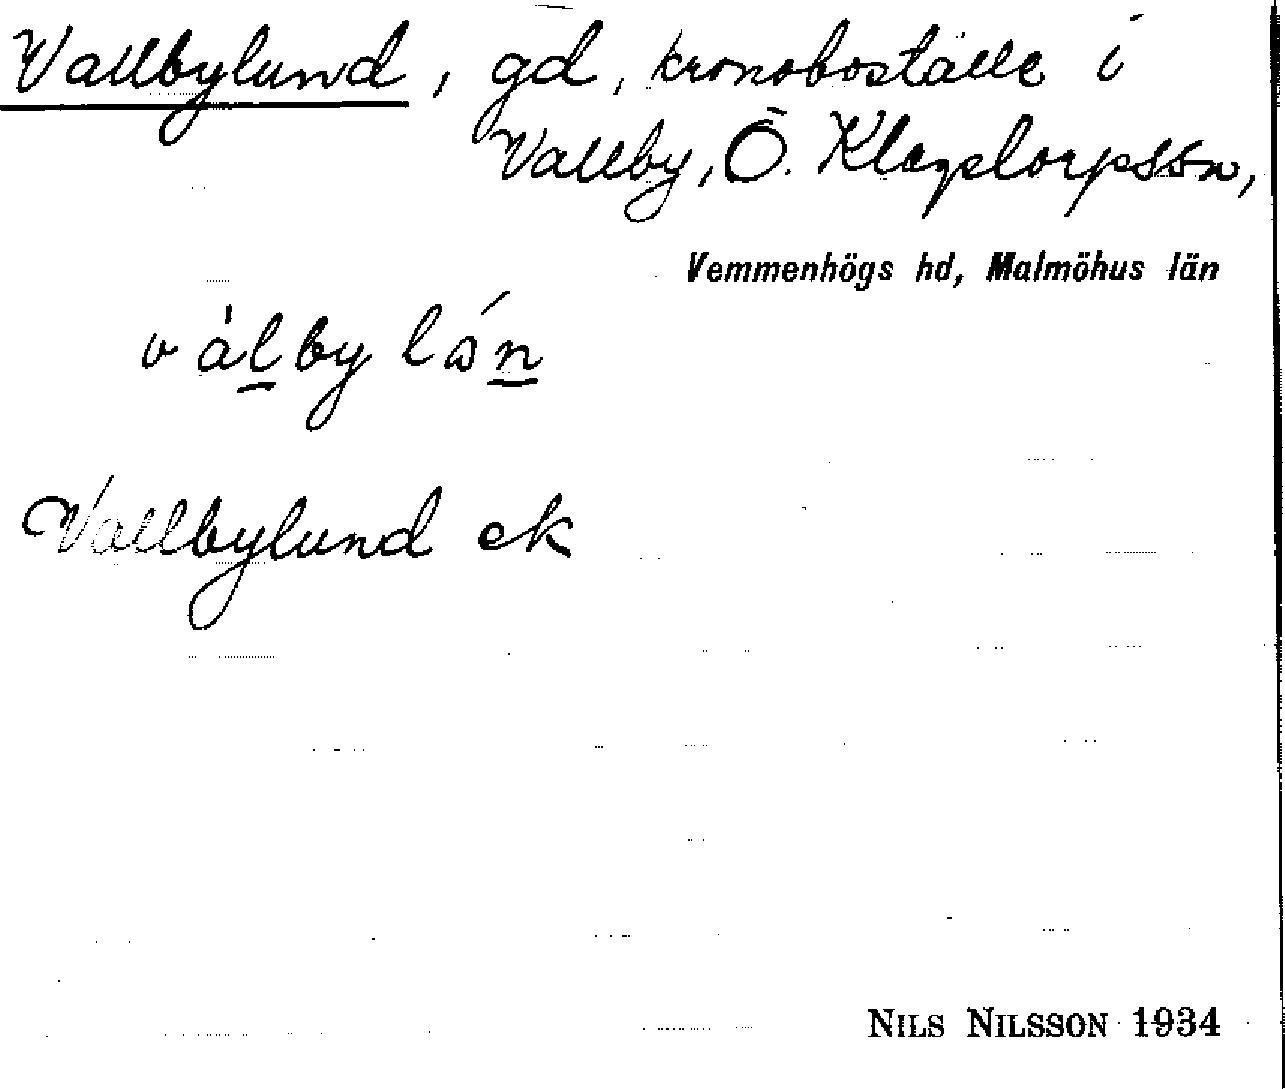 Vallbylund, gd, kronoboställe i
Vallby, Ö. Klagstorpssn,
Vemmenhögs hd, Malmöhus län
vàlby lón
Vallbylund ek
NILS NILSSON 1934